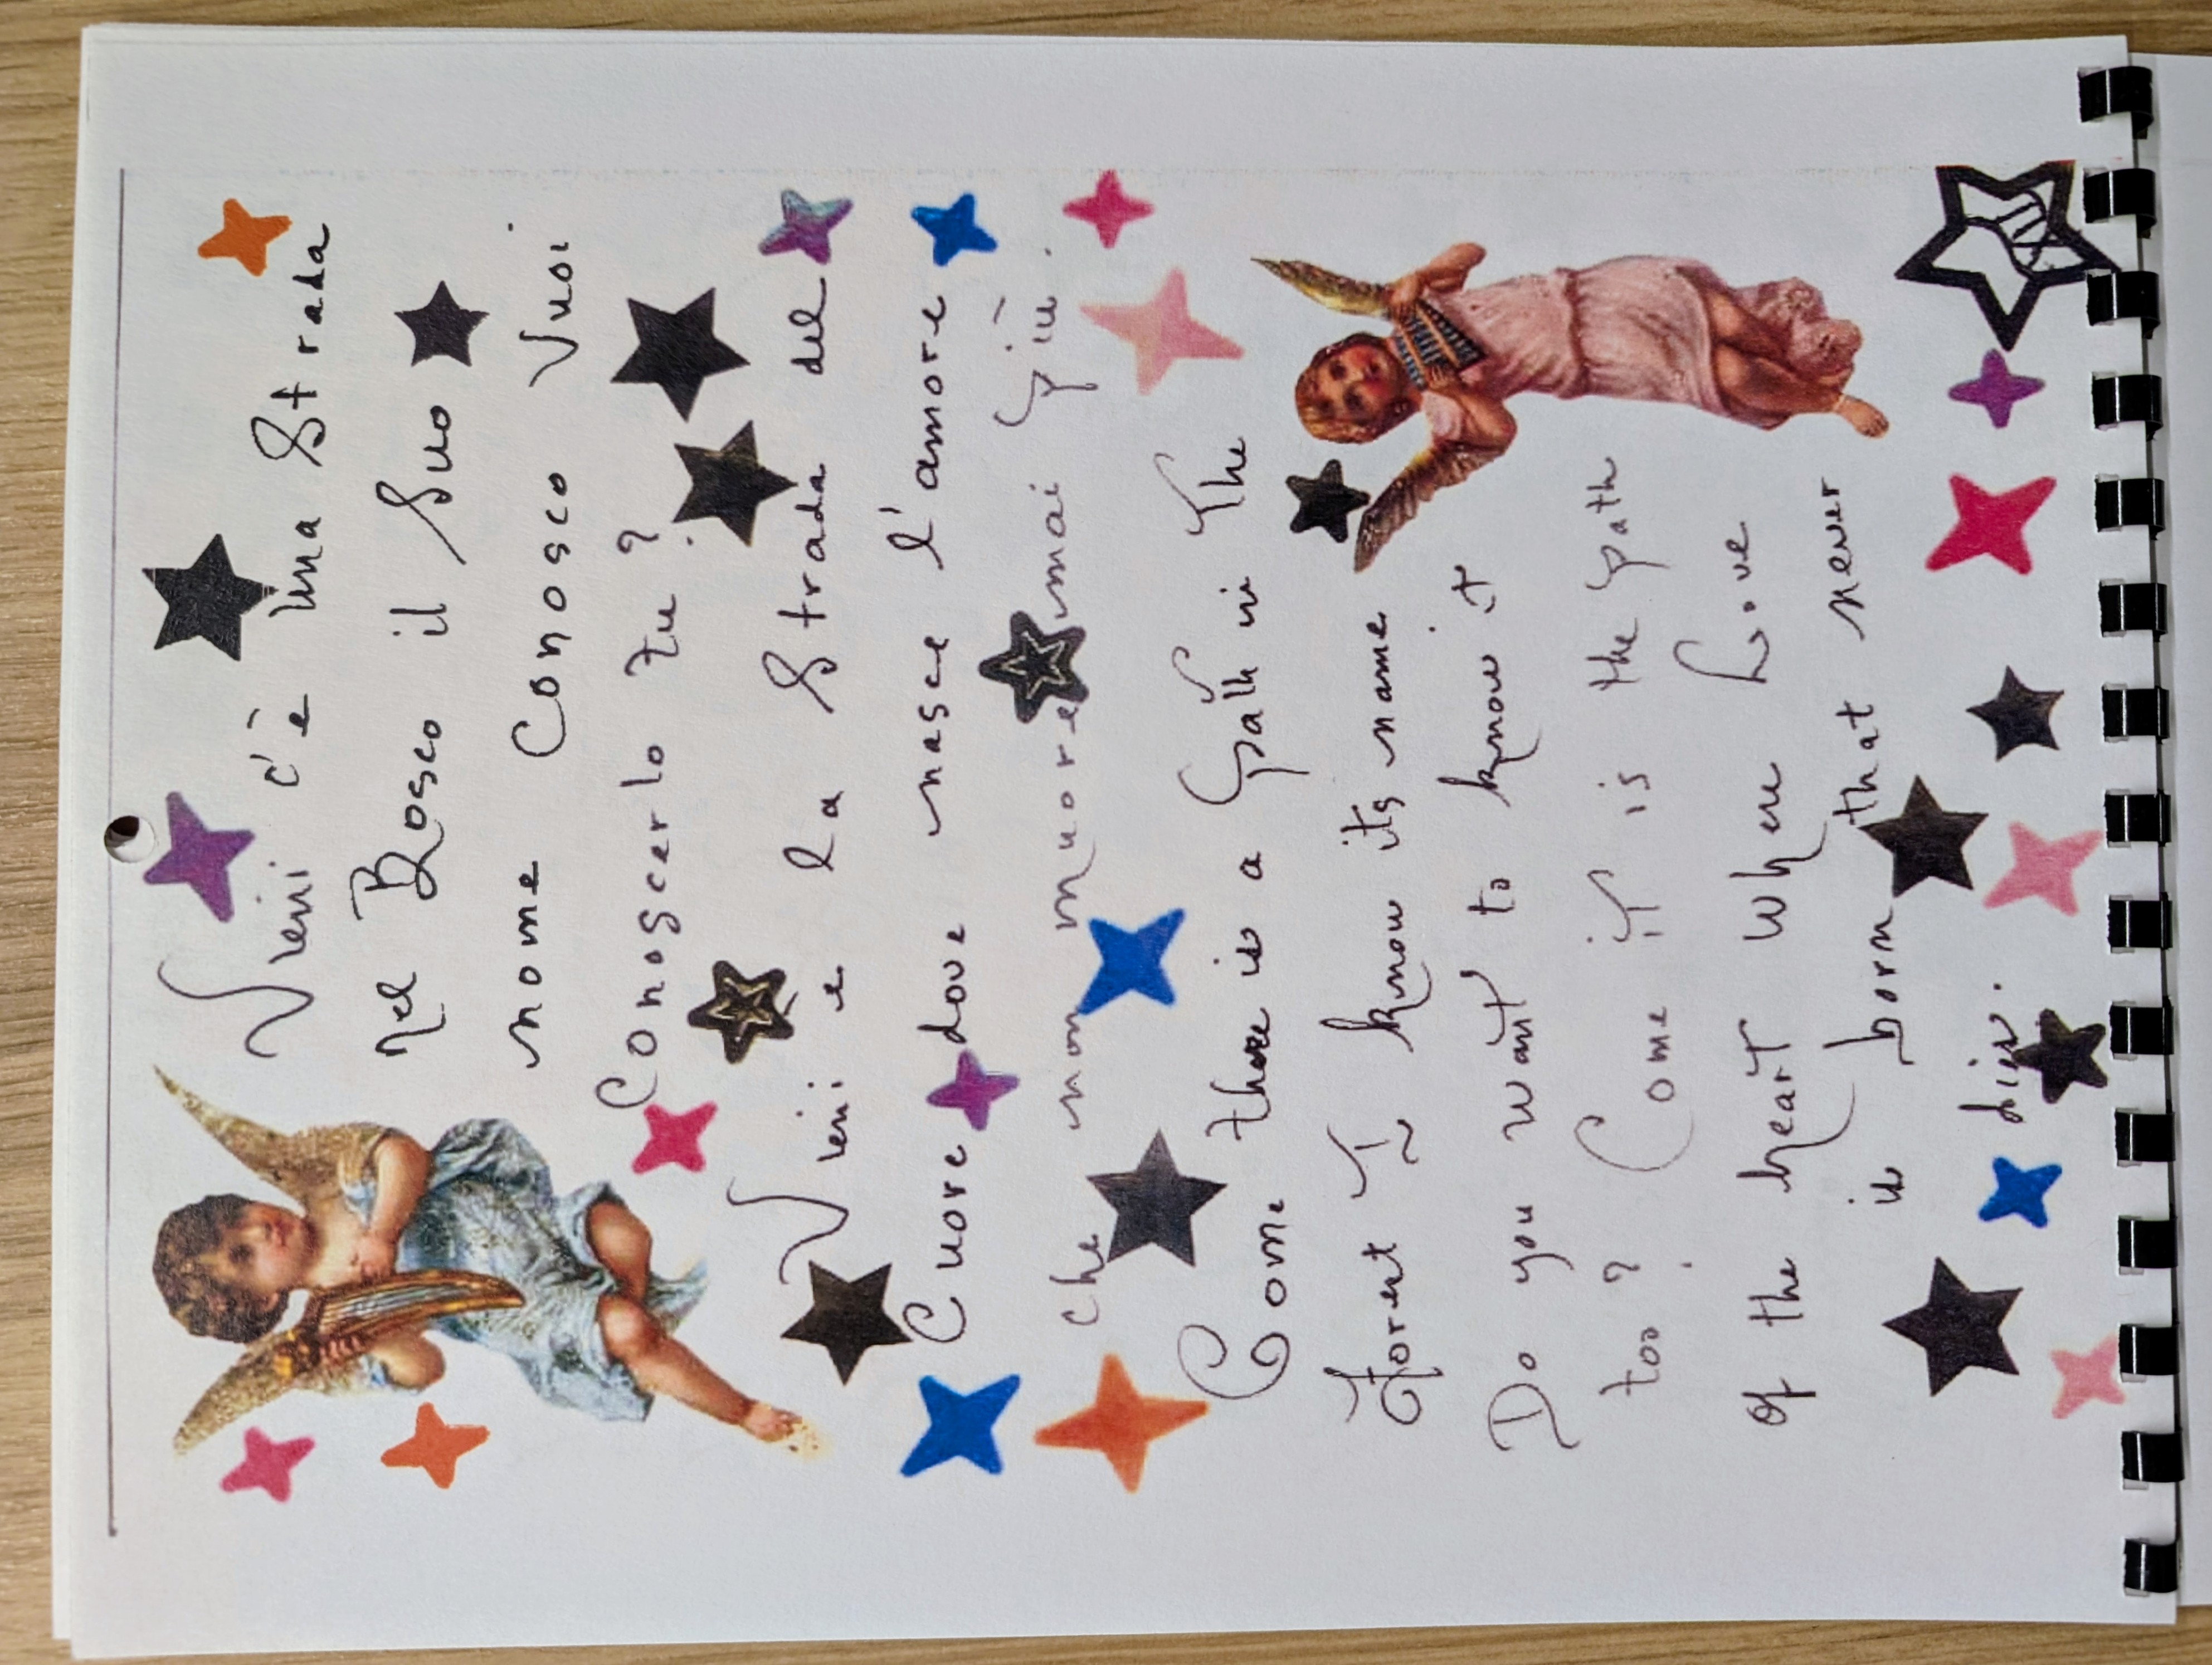 Vieni c'è una Strada
nel Bosco il Suo
nome Conosco Vuoi
Conoscerlo tu?
Vieni e la Strada del
Cuore dove nasce l'amore
che non muore mai più.
Come there is a Path in The
Forest I know its name
Do you want to know it
too? Come it is the path
of the heart when Love
is born that never
dies.